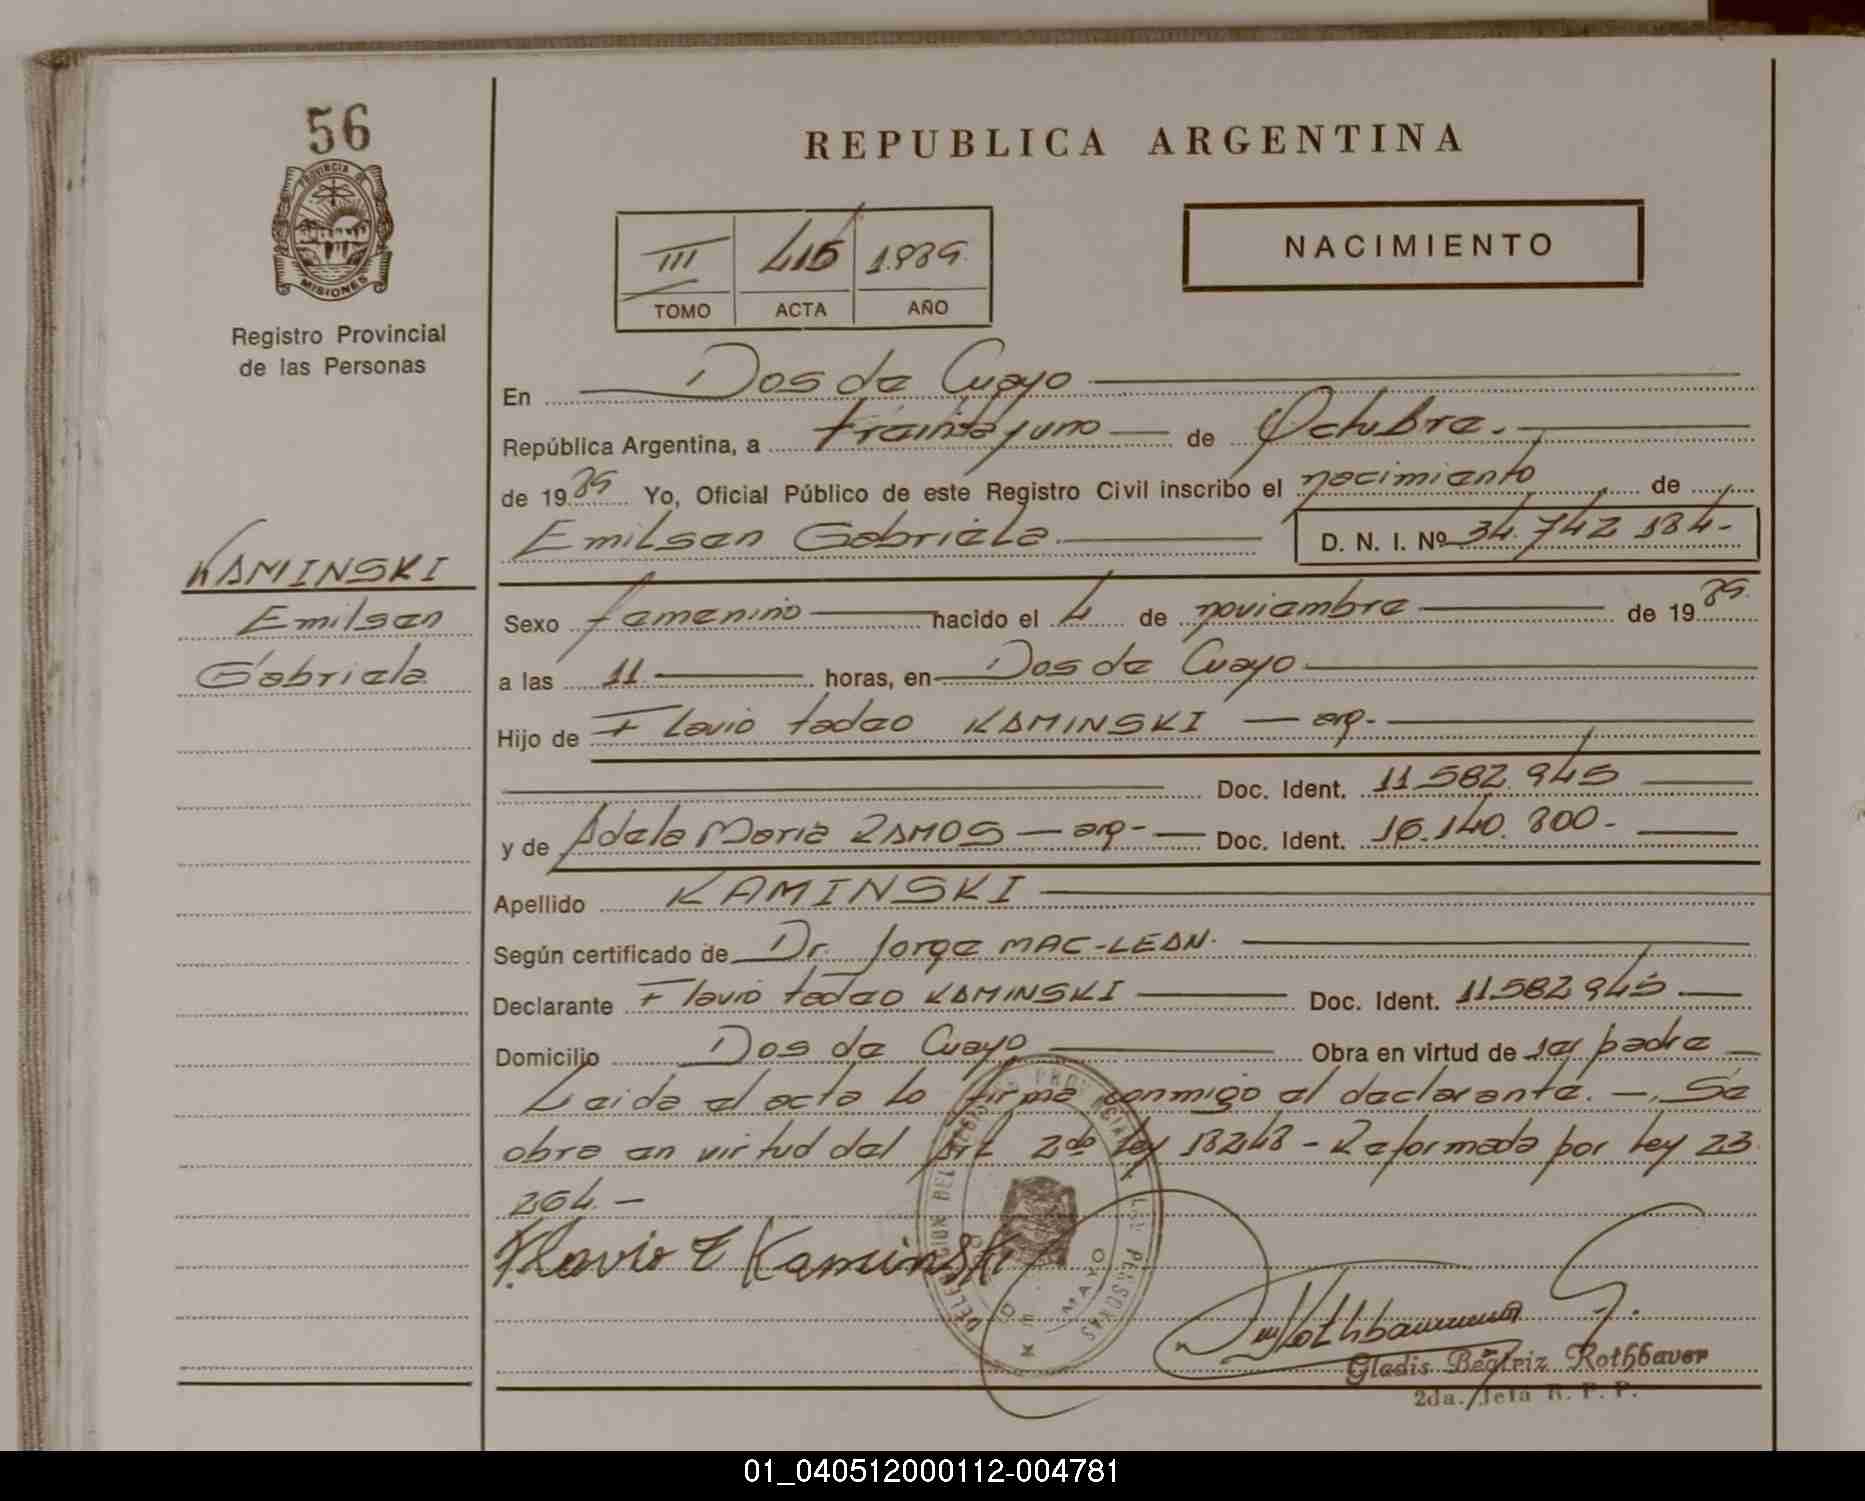 56
PROVINCIA DE
MISIONES
Registro Provincial
de las Personas
REPUBLICA ARGENTINA
NACIMIENTO
III 415 1.989.
TOMO ACTA AÑO
En Dos de Mayo
República Argentina, a treinta y uno de Octubre.
de 19 89 Yo, Oficial Público de este Registro Civil inscribo el nacimiento de
Emilsen Gabriela. D. N. I. Nº 34.742 184-
KAMINSKI
Emilsen
Gabriela
Sexo femenino nacido el 4 de noviembre de 19 89.
a las 11 horas, en Dos de Mayo
Hijo de Flavio tadeo KAMINSKI — arg-
Doc. Ident. 11.582.945
y de Adela Maria RAMOS — arg- Doc. Ident. 16.140.800-
Apellido KAMINSKI
Según certificado de Dr. Jorge MAC-LEAN.
Declarante Flavio tadeo KAMINSKI Doc. Ident. 11582945
Domicilio Dos de Mayo Obra en virtud de ser padre
Leida el acta lo firma conmigo el declarante. —. Se
obra en virtud del Art 2do ley 18248 - Reformada por ley 23
264.—
Flavio T Kaminski
DELEGACION DEL REGISTRO PROVINCIAL DE LAS PERSONAS
DOS DE MAYO
Rothbauer G.
Gladis Beatriz Rothbauer
2da. Jefa R. P. P.
01_040512000112-004781